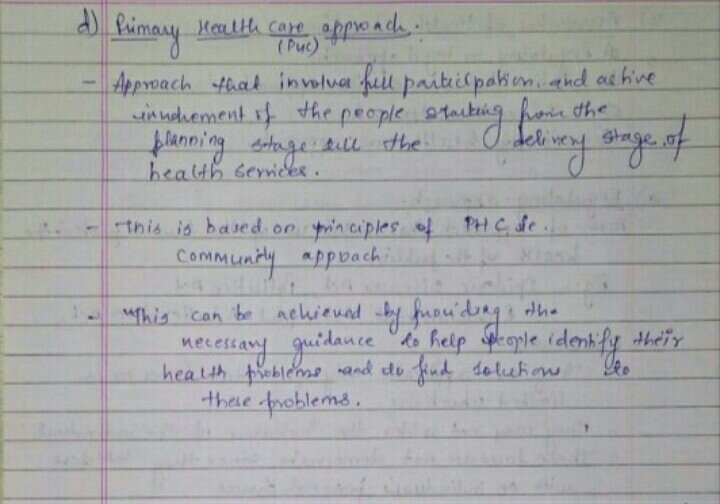 d) Primary Health care approach.
(PHC)
- Approach that involves full participation, and active
involvement of the people starting from the
planning stage till the delivery stage of
health services.
- This is based on principles of PHC ie.
Community approach.
- This can be achieved by providing the
necessary guidance to help people identify their
health problems and to find solutions to
these problems.